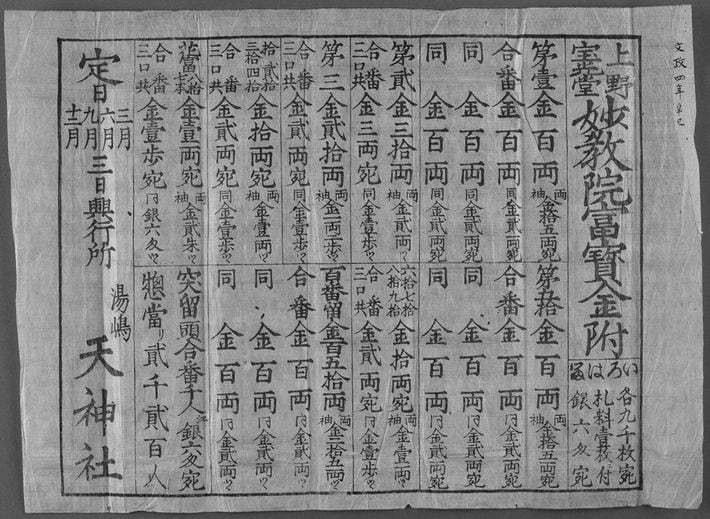 文政四年辛巳
上野
教院富寶金附
いろは
各九千枚宛
札料壹枚付
銀六匁宛
第壹金百両 両袖金拾五両宛
合番金百両 同金貳両宛
同金百両 同金貳両宛
同金百両 同金貳両宛
第貳金三拾両 両袖金貳両
合番三口共金三両宛 同金壹歩
第三金貳拾両 両袖金一両二歩
合番三口共金貳両宛 同金壹歩
拾貳拾三拾四拾金拾両宛 両袖金壹両
合番三口共金貳両宛 同金壹歩
金壹両宛 両袖金貳朱
合番三口共金壹歩宛 銀六匁
第五拾金百両 両袖金拾五両
合番金百両 金貳両宛
同金百両 金貳両宛
同金百両 金貳両宛
六拾七拾八拾九拾金拾両宛 両袖金壹両
合番三口共金貳両宛 金壹歩
百番留金百五拾両 両袖金二拾五両
合番金百両 金貳両
同金百両 金貳両
同金百両 金貳両
突留頭合番千人 銀六匁宛
惣當り貳千貳百人
定日
三月
六月
九月
十二月
三日興行所
湯嶋
天神社